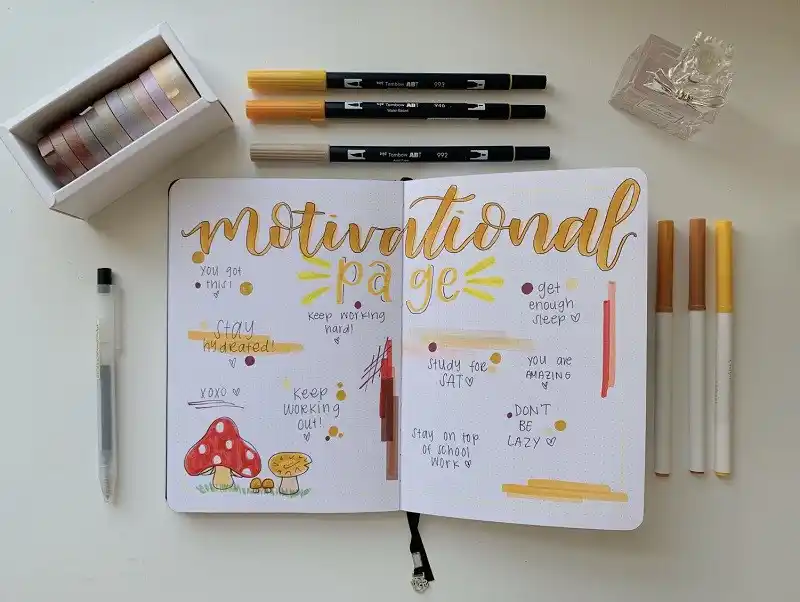 Tombow ABT 993
Tombow ABT 946
Tombow ABT 992
motivational
page
you got
this!
Keep working
hard!
stay
hydrated!
xoxo
Keep
working
out!!
get
enough
sleep
study for
SAT
you are
AMAZING
DON'T
BE
LAZY
stay on top
of school
work